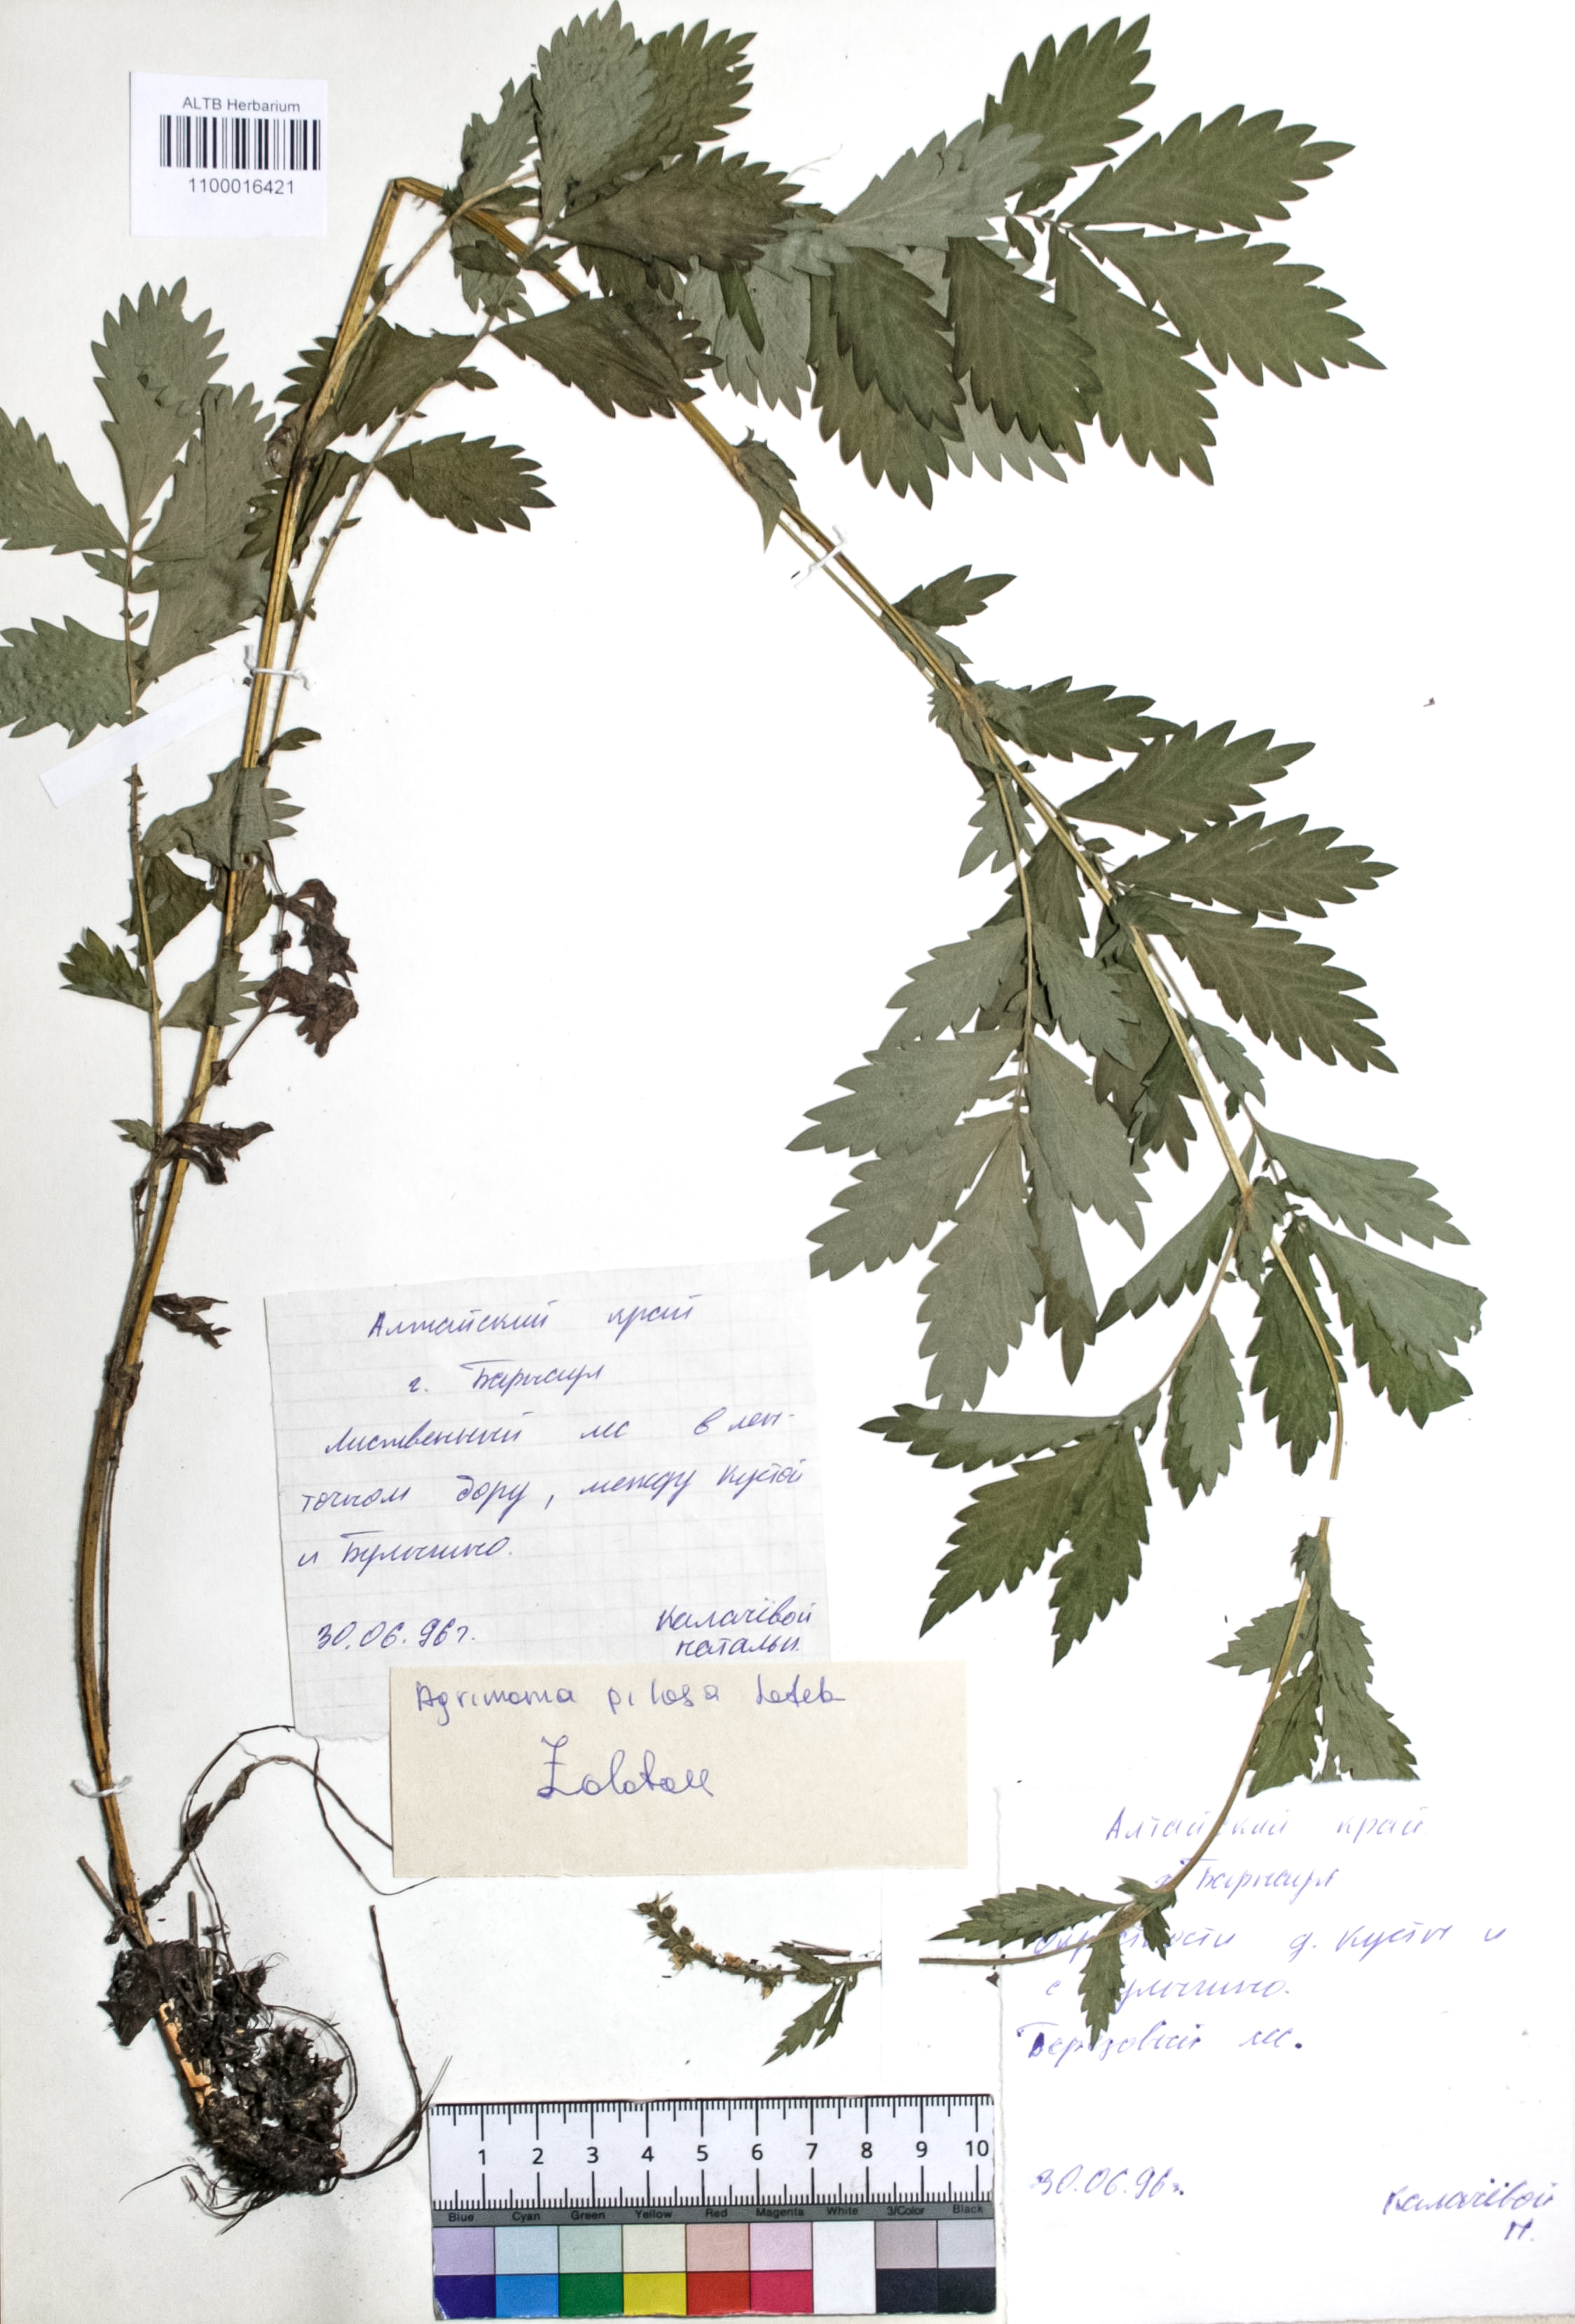 ALTB Herbarium
1100016421
Алтайский край
г. Барнаул
Лиственный лес в лен-
точном бору, между Кустой
и Булыгино.
30.06.96г.
Калачёвой
Натальи
Agrimonia pilosa Ledeb
Zolotov
Алтайский край
г. Барнаул
д. Кусты и
с
Берёзовый лес.
30.06.96г.
Калачёвой
Н.
1 2 3 4 5 6 7 8 9 10
Blue Cyan Green Yellow Red Magenta White 3/Color Black